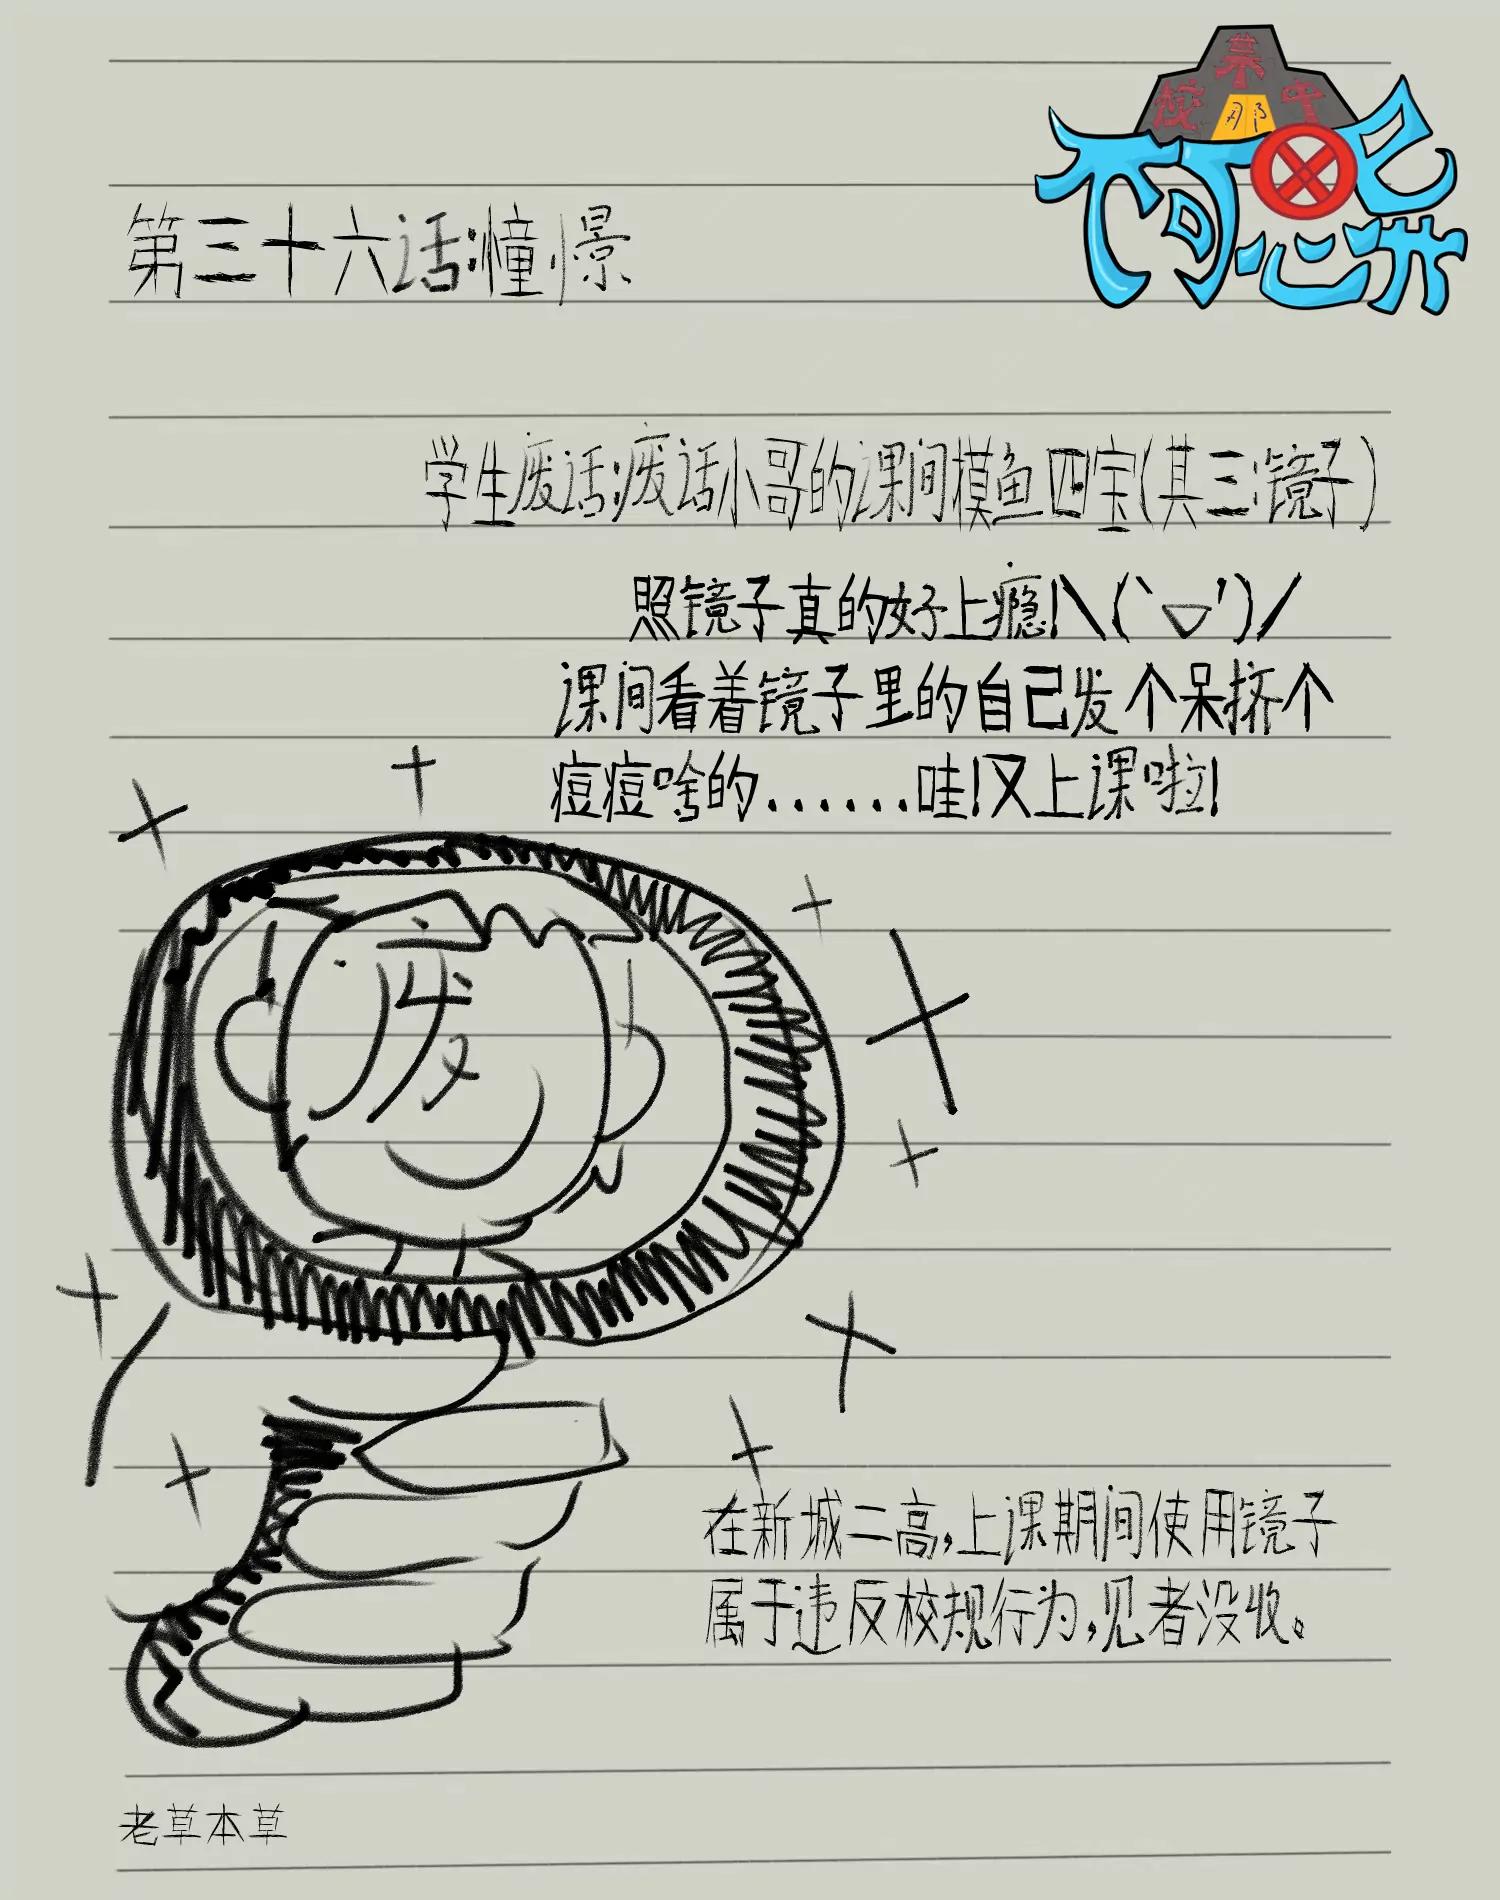 某
校 那 牛
奇忌异
第三十六话:憧憬
学生废话:废话小哥的课间摸鱼四宝(其三:镜子)
照镜子真的好上瘾!\(`▽')/
课间看着镜子里的自己发个呆挤个
痘痘啥的......哇!又上课啦!
废
在新城二高,上课期间使用镜子
属于违反校规行为,见者没收。
老草本草